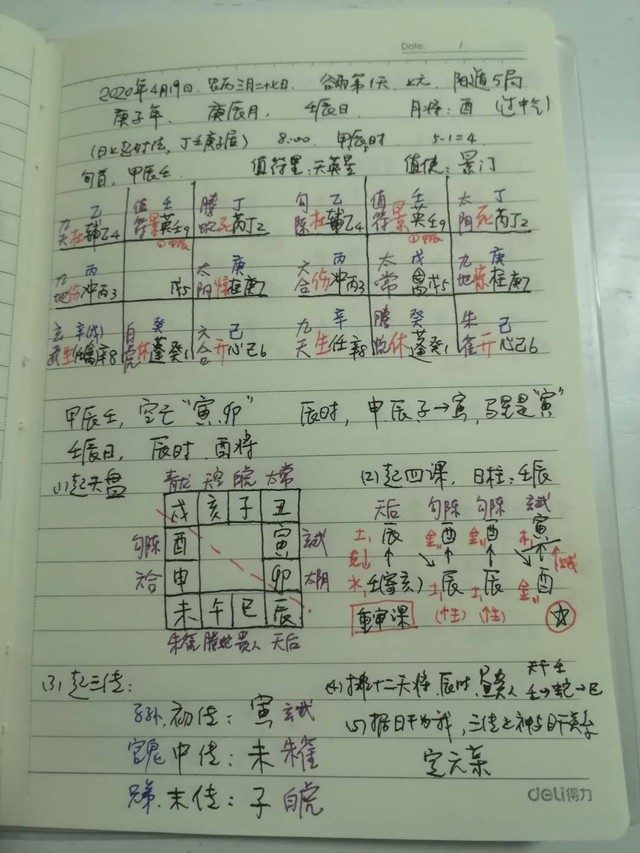 Date. /
2020年4月19日 农历三月二十七日. 谷雨第1天, 上元, 阳遁5局
庚子年. 庚辰月, 壬辰日. 月将: 酉 (过中气)
(日上起时法, 丁壬庚子居) 8:00. 甲辰时. 5-1=4
旬首, 甲辰壬. 值符星: 天英星 值使: 景门
乙 值 壬 腾 丁 勾 乙 值 壬 太 丁
九天杜辅乙4 符景英壬9 蛇死芮丁2 陈杜辅乙4 符景英壬9 阴死芮丁2
丙 太 庚 六 丙 太 戊 九 庚
九地伤冲丙3 戊5 阴惊柱庚7 合伤冲丙3 常 禽戊5 地惊柱庚7
玄 辛(戊) 白 癸 六 己 九 辛 腾 癸 朱 己
武生任禽辛8 虎休蓬癸1 合开心己6 天生任辛8 蛇休蓬癸1 雀开心己6
甲辰壬, 空亡“寅.卯” 辰时, 申.辰.子→寅, 马星是“寅”
壬辰日, 辰时 酉将
(1)起天盘 青龙 天空 白虎 太常 (2)起四课, 日柱: 壬辰
戌 亥 子 丑 天后 勾陈 勾陈 玄武
勾陈 酉 寅 玄武 土 辰 金 酉 金 酉 木 寅
克 ↑ ↑
六合 申 卯 太阴 水 壬(寄亥) 土 辰 土 辰 金 酉
未 午 巳 辰 重审课
朱雀 腾蛇 贵人 天后
(3)起三传: (4)排十二天将.辰时.
天干壬
壬→蛇→巳
子孙. 初传: 寅 玄武
(5)据日干为我, 三传之神与日干关系
官鬼 中传: 未 朱雀 定六亲
兄弟. 末传: 子 白虎
deli得力